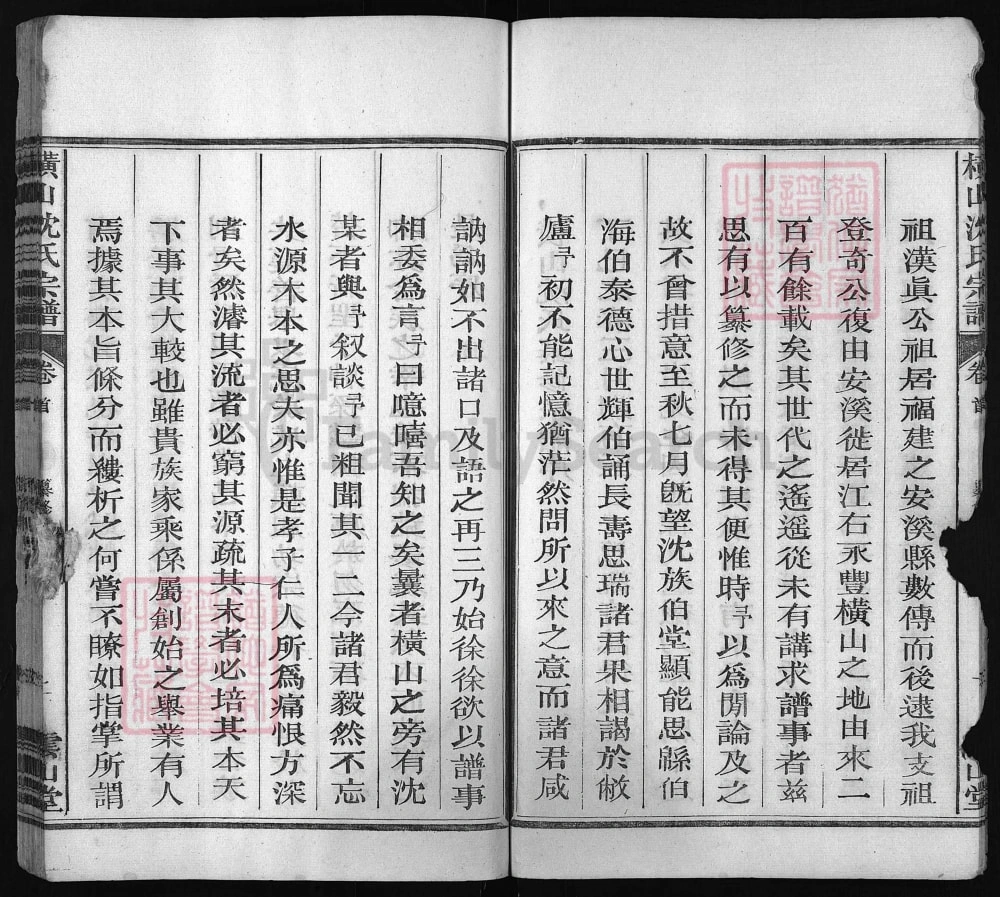 祖漢眞公祖居福建之安溪縣數傳而後遠我支祖
登奇公復由安溪徙居江右永豐橫山之地由來二
百有餘載矣其世代之遙遙從未有講求譜事者兹
思有以纂修之而未得其便惟時㝷以爲閒論及之
故不曾措意至秋七月旣望沈族伯堂顯能思緜伯
海伯泰德心世輝伯誦長壽思瑞諸君果相謁於敝
廬㝷初不能記憶猶茫然問所以來之意而諸君咸
訥訥如不出諸口及語之再三乃始徐徐欲以譜事
相委爲言㝷曰噫嘻吾知之矣曩者橫山之旁有沈
某者與㝷叙談㝷已粗聞其一二今諸君毅然不忘
水源木本之思夫亦惟是孝子仁人所爲痛恨方深
者矣然濬其流者必窮其源疏其末者必培其本天
下事其大較也雖貴族家乘係屬創始之舉業有人
焉據其本旨條分而縷析之何嘗不瞭如指掌所謂
橫山沈氏宗譜 卷首 纂修 雲山堂
橫山沈氏宗譜 卷首 山堂
FamilySearch